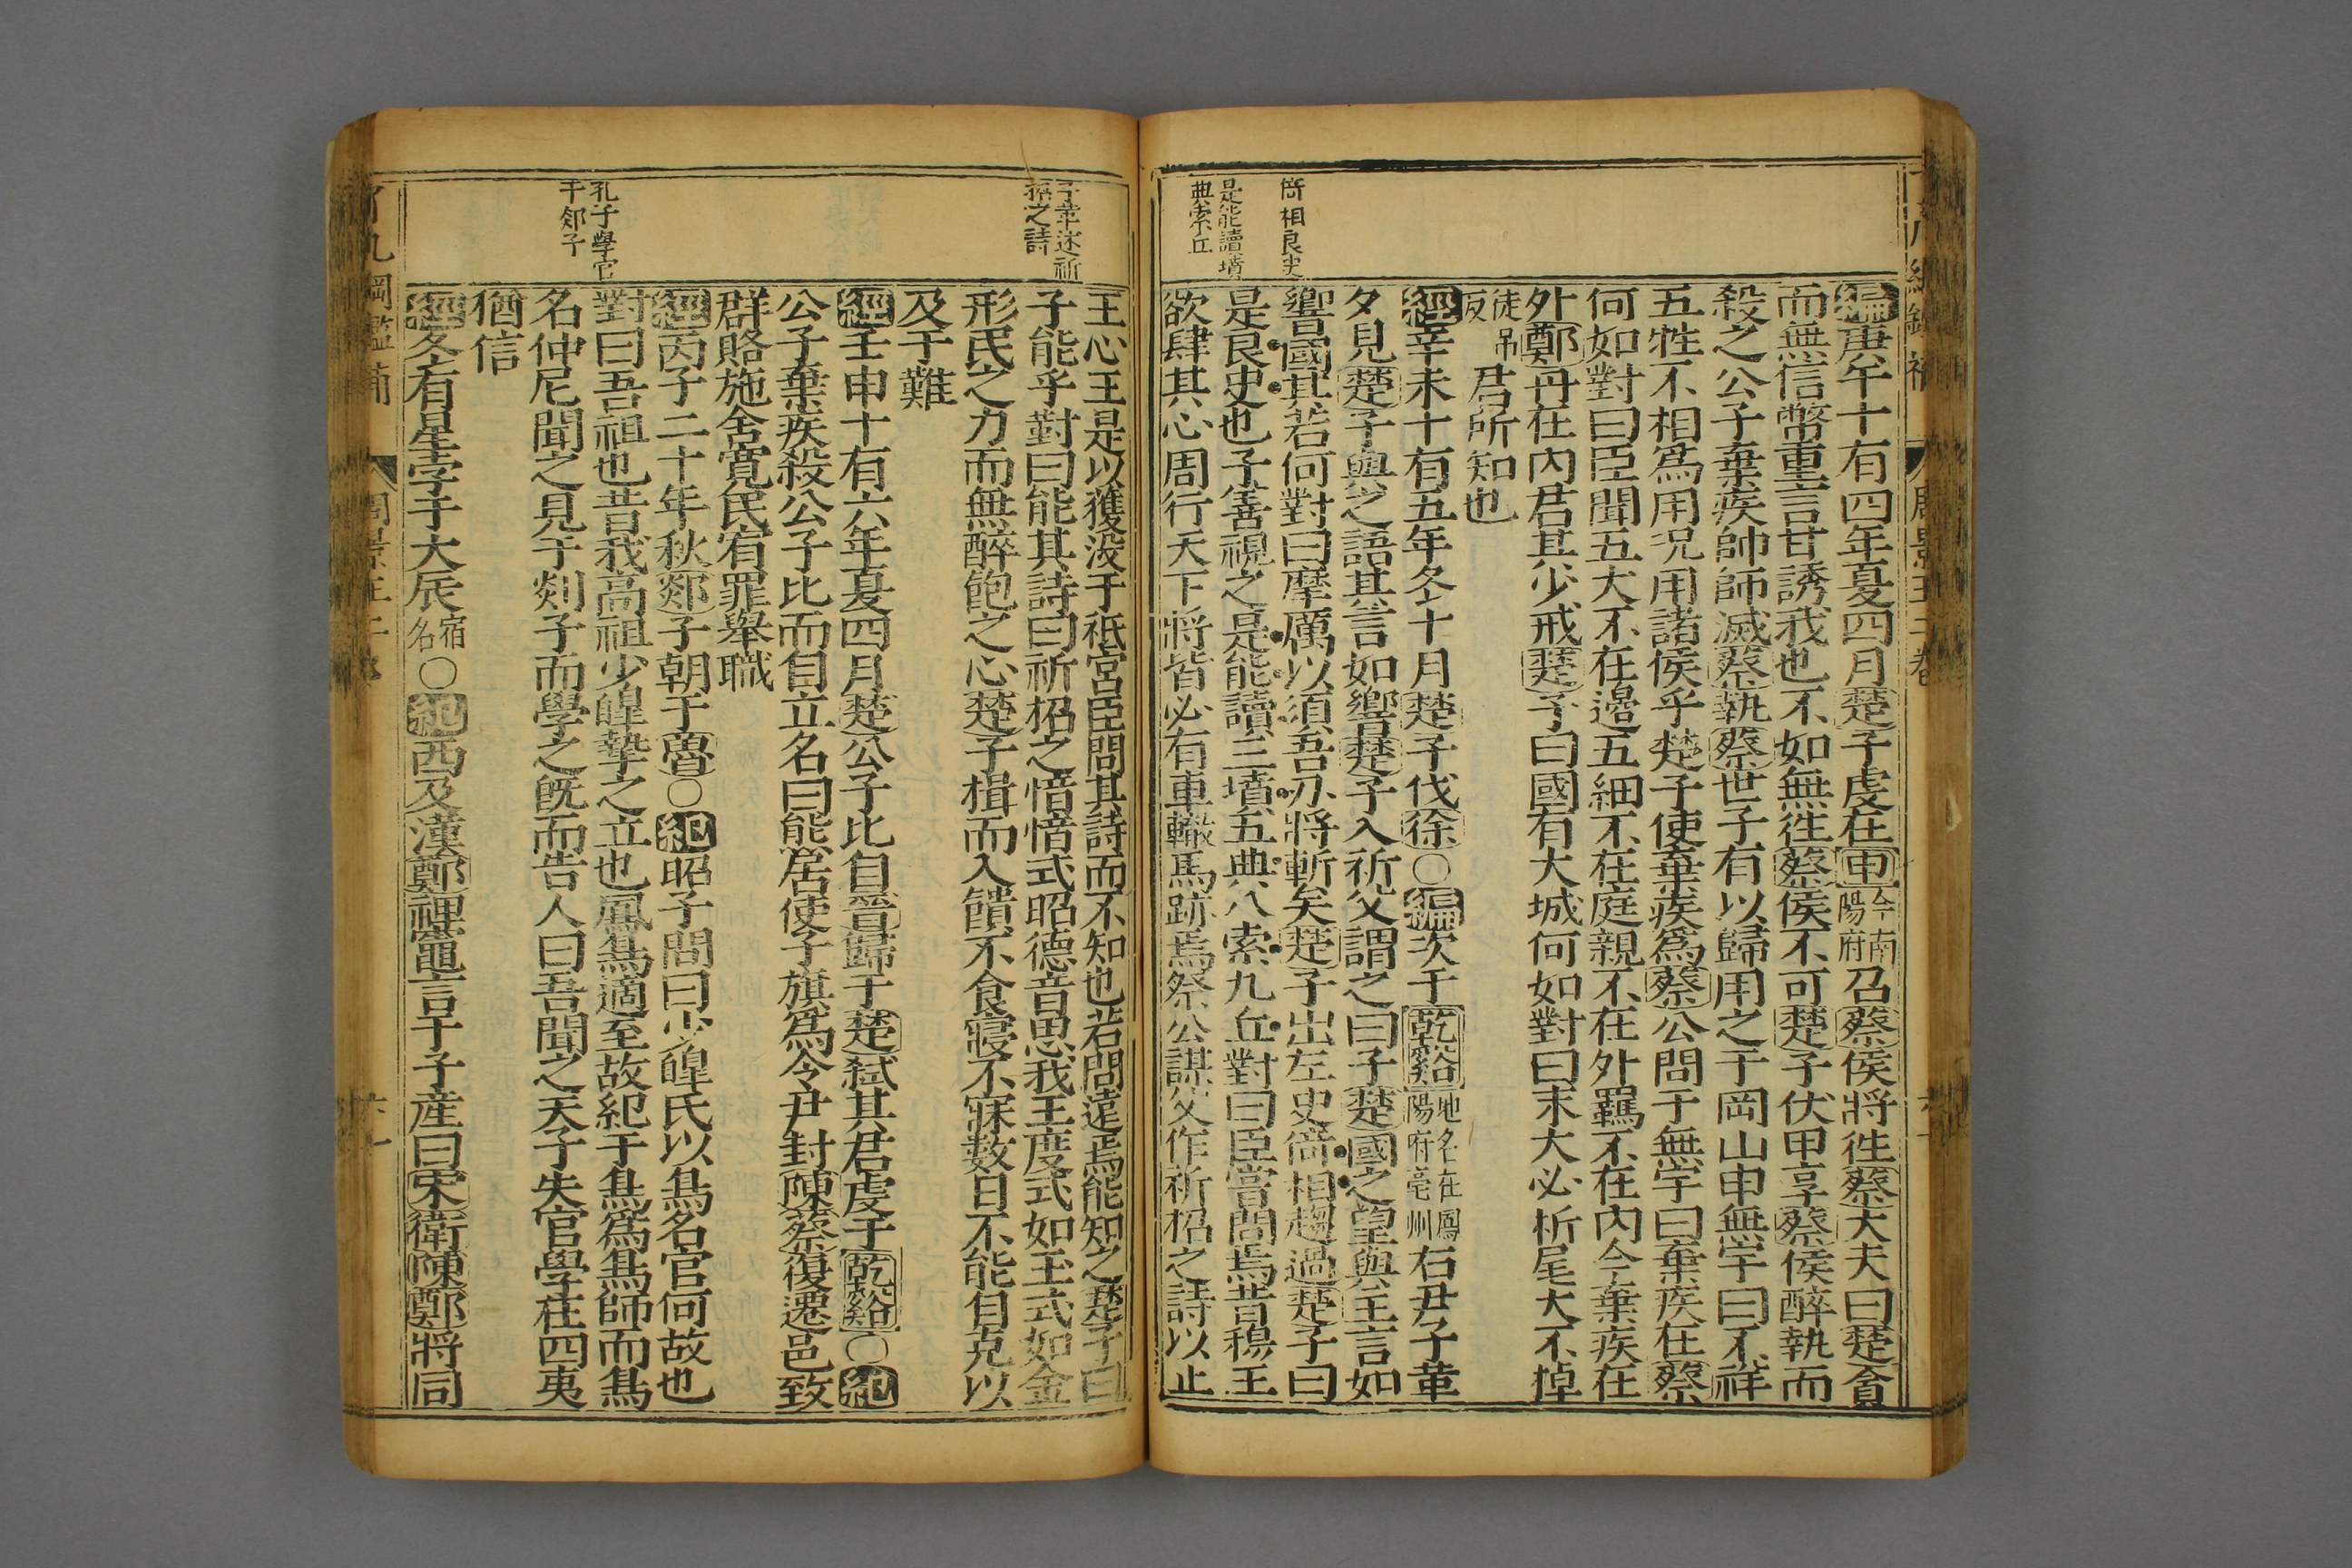 倚相良史
是能讀墳
典索丘
編庚午十有四年夏四月楚子虔在申今南陽府召蔡侯將往蔡大夫曰楚貪
而無信幣重言甘誘我也不如無往蔡侯不可楚子伏甲享蔡侯醉執而
殺之公子棄疾帥師滅蔡執蔡世子有以歸用之于岡山申無宇曰不祥
五牲不相爲用况用諸侯乎楚子使棄疾爲蔡公問于無宇曰棄疾在蔡
何如對曰臣聞五大不在邊五細不在庭親不在外羈不在內今棄疾在
外鄭丹在內君其少戒楚子曰國有大城何如對曰末大必折尾大不掉
徒吊反君所知也
經辛未十有五年冬十月楚子伐徐○編次于乾谿地名在鳳陽府亳州右尹子革
夕見楚子與之語其言如響楚子入祈父謂之曰子楚國之望與王言如
響國其若何對曰摩厲以須吾刃將斬矣楚子出左史倚相趨過楚子曰
是良史也子善視之是能讀三墳五典八索九丘對曰臣嘗問焉昔穆王
欲肆其心周行天下將皆必有車轍馬跡焉祭公謀父作祈招之詩以止
子革述祈
招之詩
孔子學官
于郯子
王心王是以獲没于祗宮臣問其詩而不知也若問遠焉能知之楚子曰
子能乎對曰能其詩曰祈招之愔愔式昭德音思我王度式如玉式如金
形民之力而無醉飽之心楚子揖而入饋不食寢不寐數日不能自克以
及于難
經壬申十有六年夏四月楚公子比自晉歸于楚弑其君虔于乾谿○紀
公子棄疾殺公子比而自立名曰熊居使子旗爲令尹封陳蔡復遷邑致
群賂施舍寬民宥罪舉職
經丙子二十年秋郯子朝于魯○紀昭子問曰少皥氏以鳥名官何故也
對曰吾祖也昔我高祖少皥摯之立也鳳鳥適至故紀于鳥爲鳥師而鳥
名仲尼聞之見于剡子而學之旣而告人曰吾聞之天子失官學在四夷
猶信
經冬有星孛于大辰宿名○紀西及漢鄭裨竈言于子産曰宋衛陳鄭將同
了凡綱鑑補
周景王